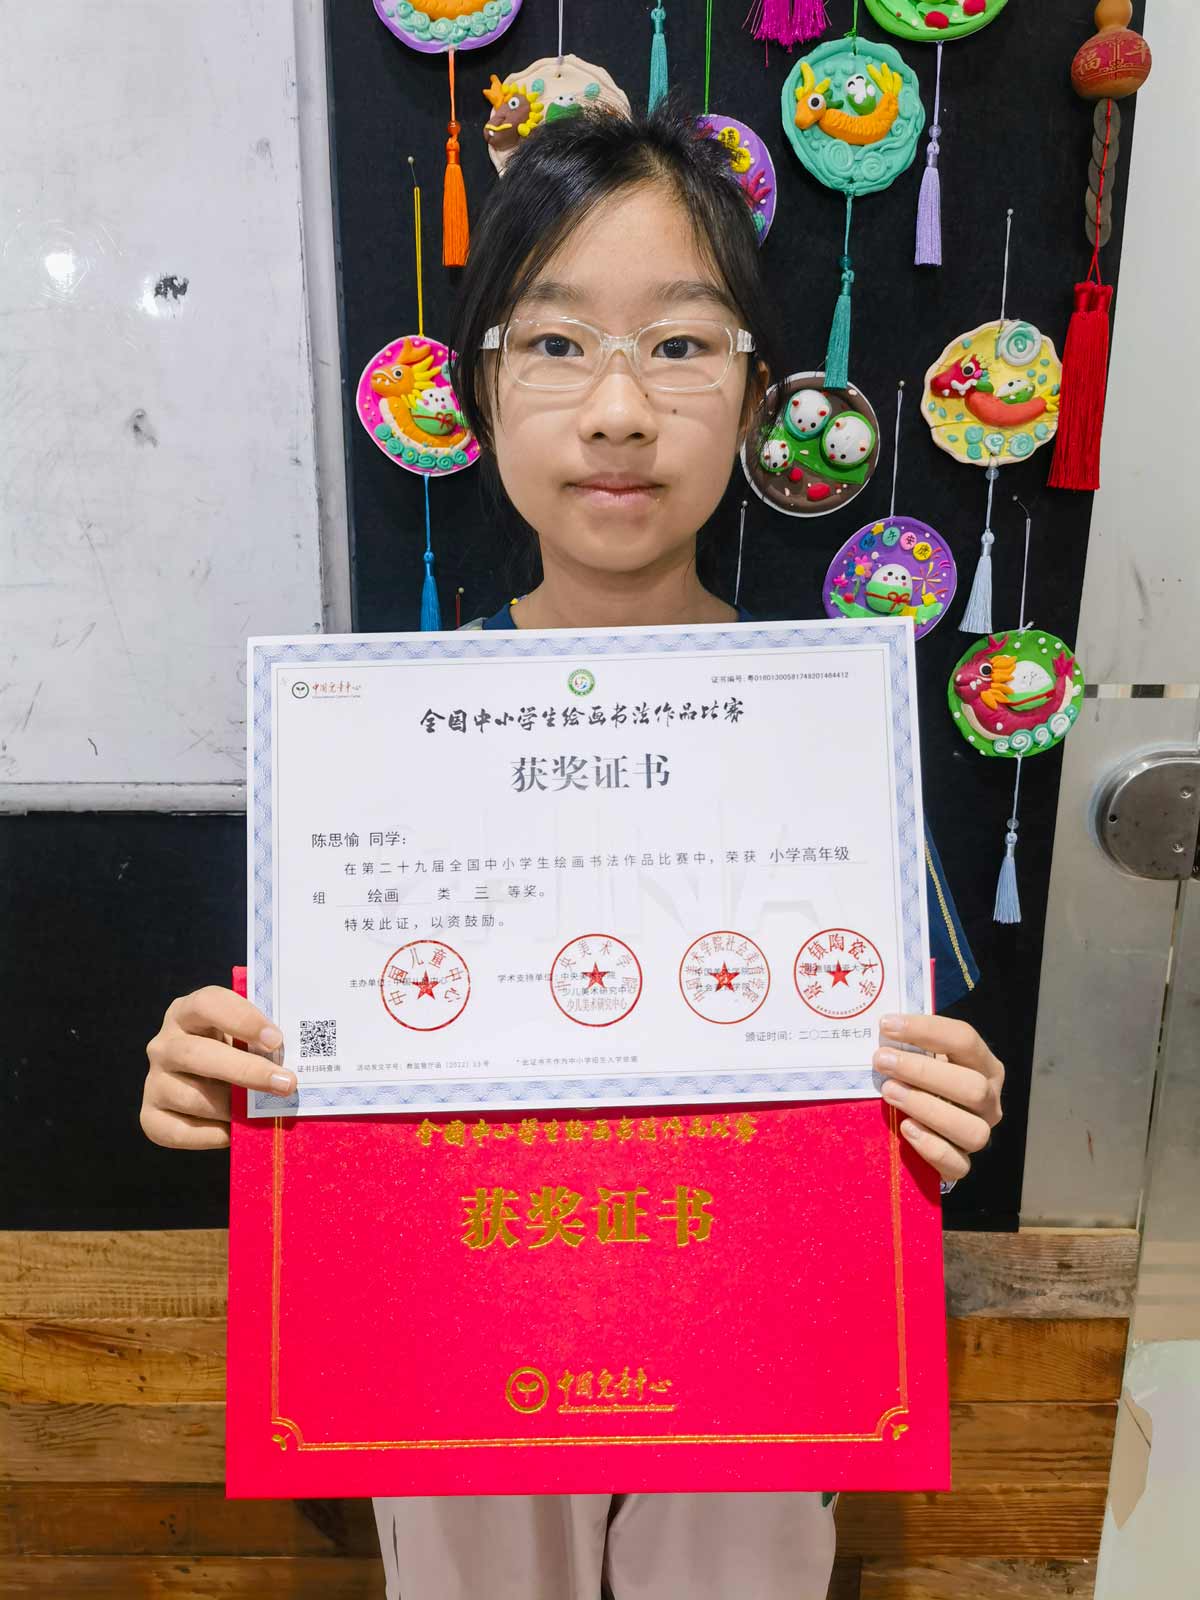 福
中国儿童中心
证书编号:粤01601300581749201464412
全国中小学生绘画书法作品比赛
获奖证书
陈思愉 同学:
在第二十九届全国中小学生绘画书法作品比赛中，荣获 小学高年级
组 绘画 类 三 等奖。
特发此证，以资鼓励。
主办单位:中国儿童中心
学术支持单位:中央美术学院
少儿美术研究中心
中国美术学院
社会美育学院
景德镇陶瓷大学
中国儿童中心
中央美术学院
少儿美术研究中心
中国美术学院社会美育学院
景德镇陶瓷大学
颁证时间:二〇二五年七月
证书扫码查询
活动发文字号:教监管厅函（2022）13号
*此证书不作为中小学招生入学依据
全国中小学生绘画书法作品比赛
获奖证书
中国儿童中心